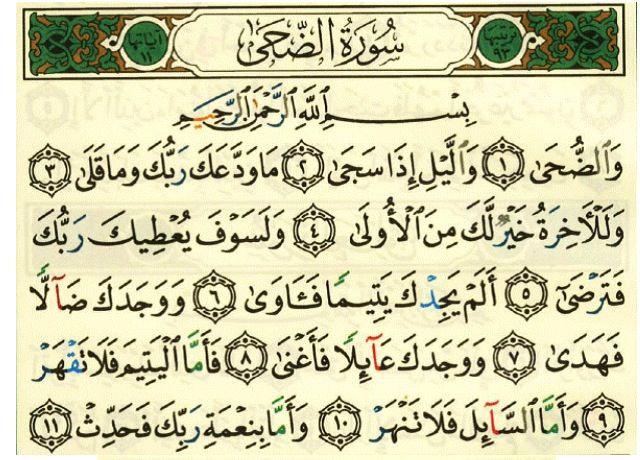 ترتيبها ٩٣ سُورَةُ الضُّحَىٰ آياتها ١١
بِسْمِ اللَّهِ الرَّحْمَٰنِ الرَّحِيمِ
وَالضُّحَىٰ ١ وَالَّيْلِ إِذَا سَجَىٰ ٢ مَا وَدَّعَكَ رَبُّكَ وَمَا قَلَىٰ ٣
وَلَلْأَخِرَةُ خَيْرٌ لَّكَ مِنَ الْأُولَىٰ ٤ وَلَسَوْفَ يُعْطِيكَ رَبُّكَ
فَتَرْضَىٰٓ ٥ أَلَمْ يَجِدْكَ يَتِيمًا فَـَٔاوَىٰ ٦ وَوَجَدَكَ ضَآلًّا
فَهَدَىٰ ٧ وَوَجَدَكَ عَآئِلًا فَأَغْنَىٰ ٨ فَأَمَّا الْيَتِيمَ فَلَا تَقْهَرْ
٩ وَأَمَّا السَّآئِلَ فَلَا تَنْهَرْ ١٠ وَأَمَّا بِنِعْمَةِ رَبِّكَ فَحَدِّثْ ١١